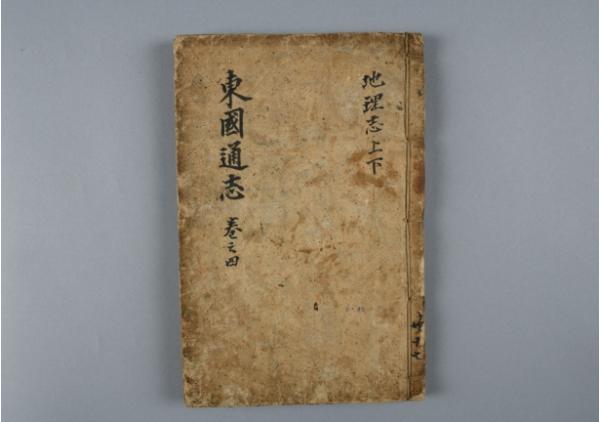 地理志上下
東國通志 卷之四